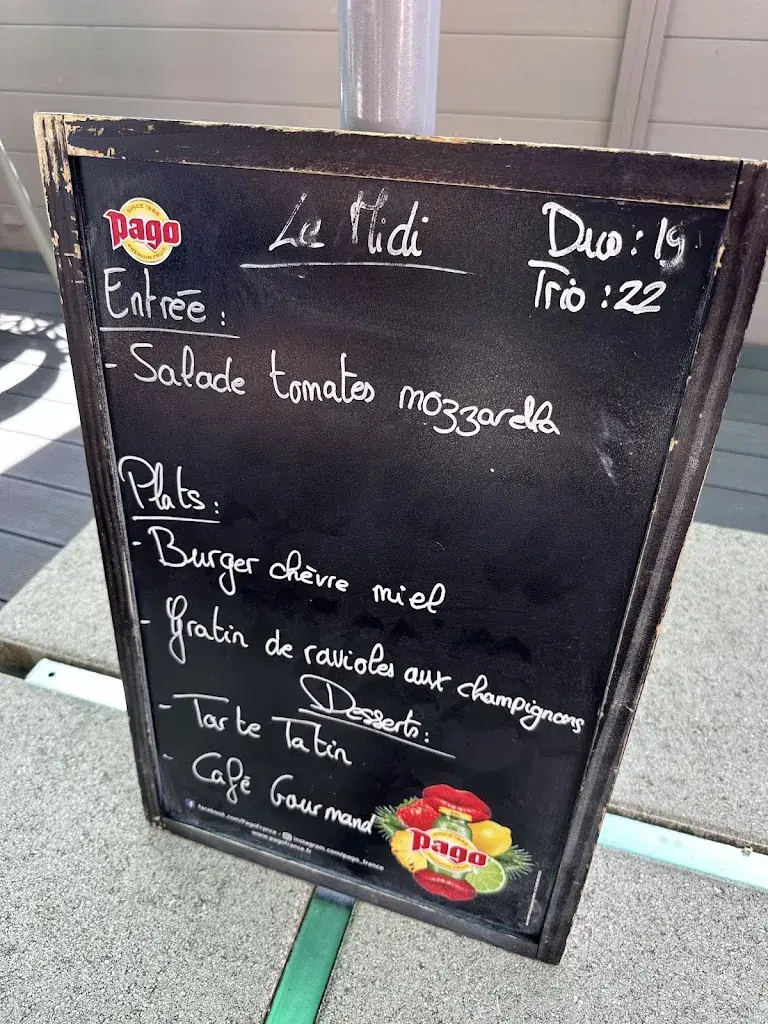 SINCE 1888
pago
PREMIUM FRUIT
Le Midi
Duo : 19
Trio : 22
Entrée :
- Salade tomates mozzarella
Plats :
- Burger chèvre miel
- Gratin de ravioles aux champignons
Desserts :
- Tarte Tatin
- Café Gourmand
facebook.com/PagoFrance - instagram.com/pago_france
www.pagofrance.fr
pago